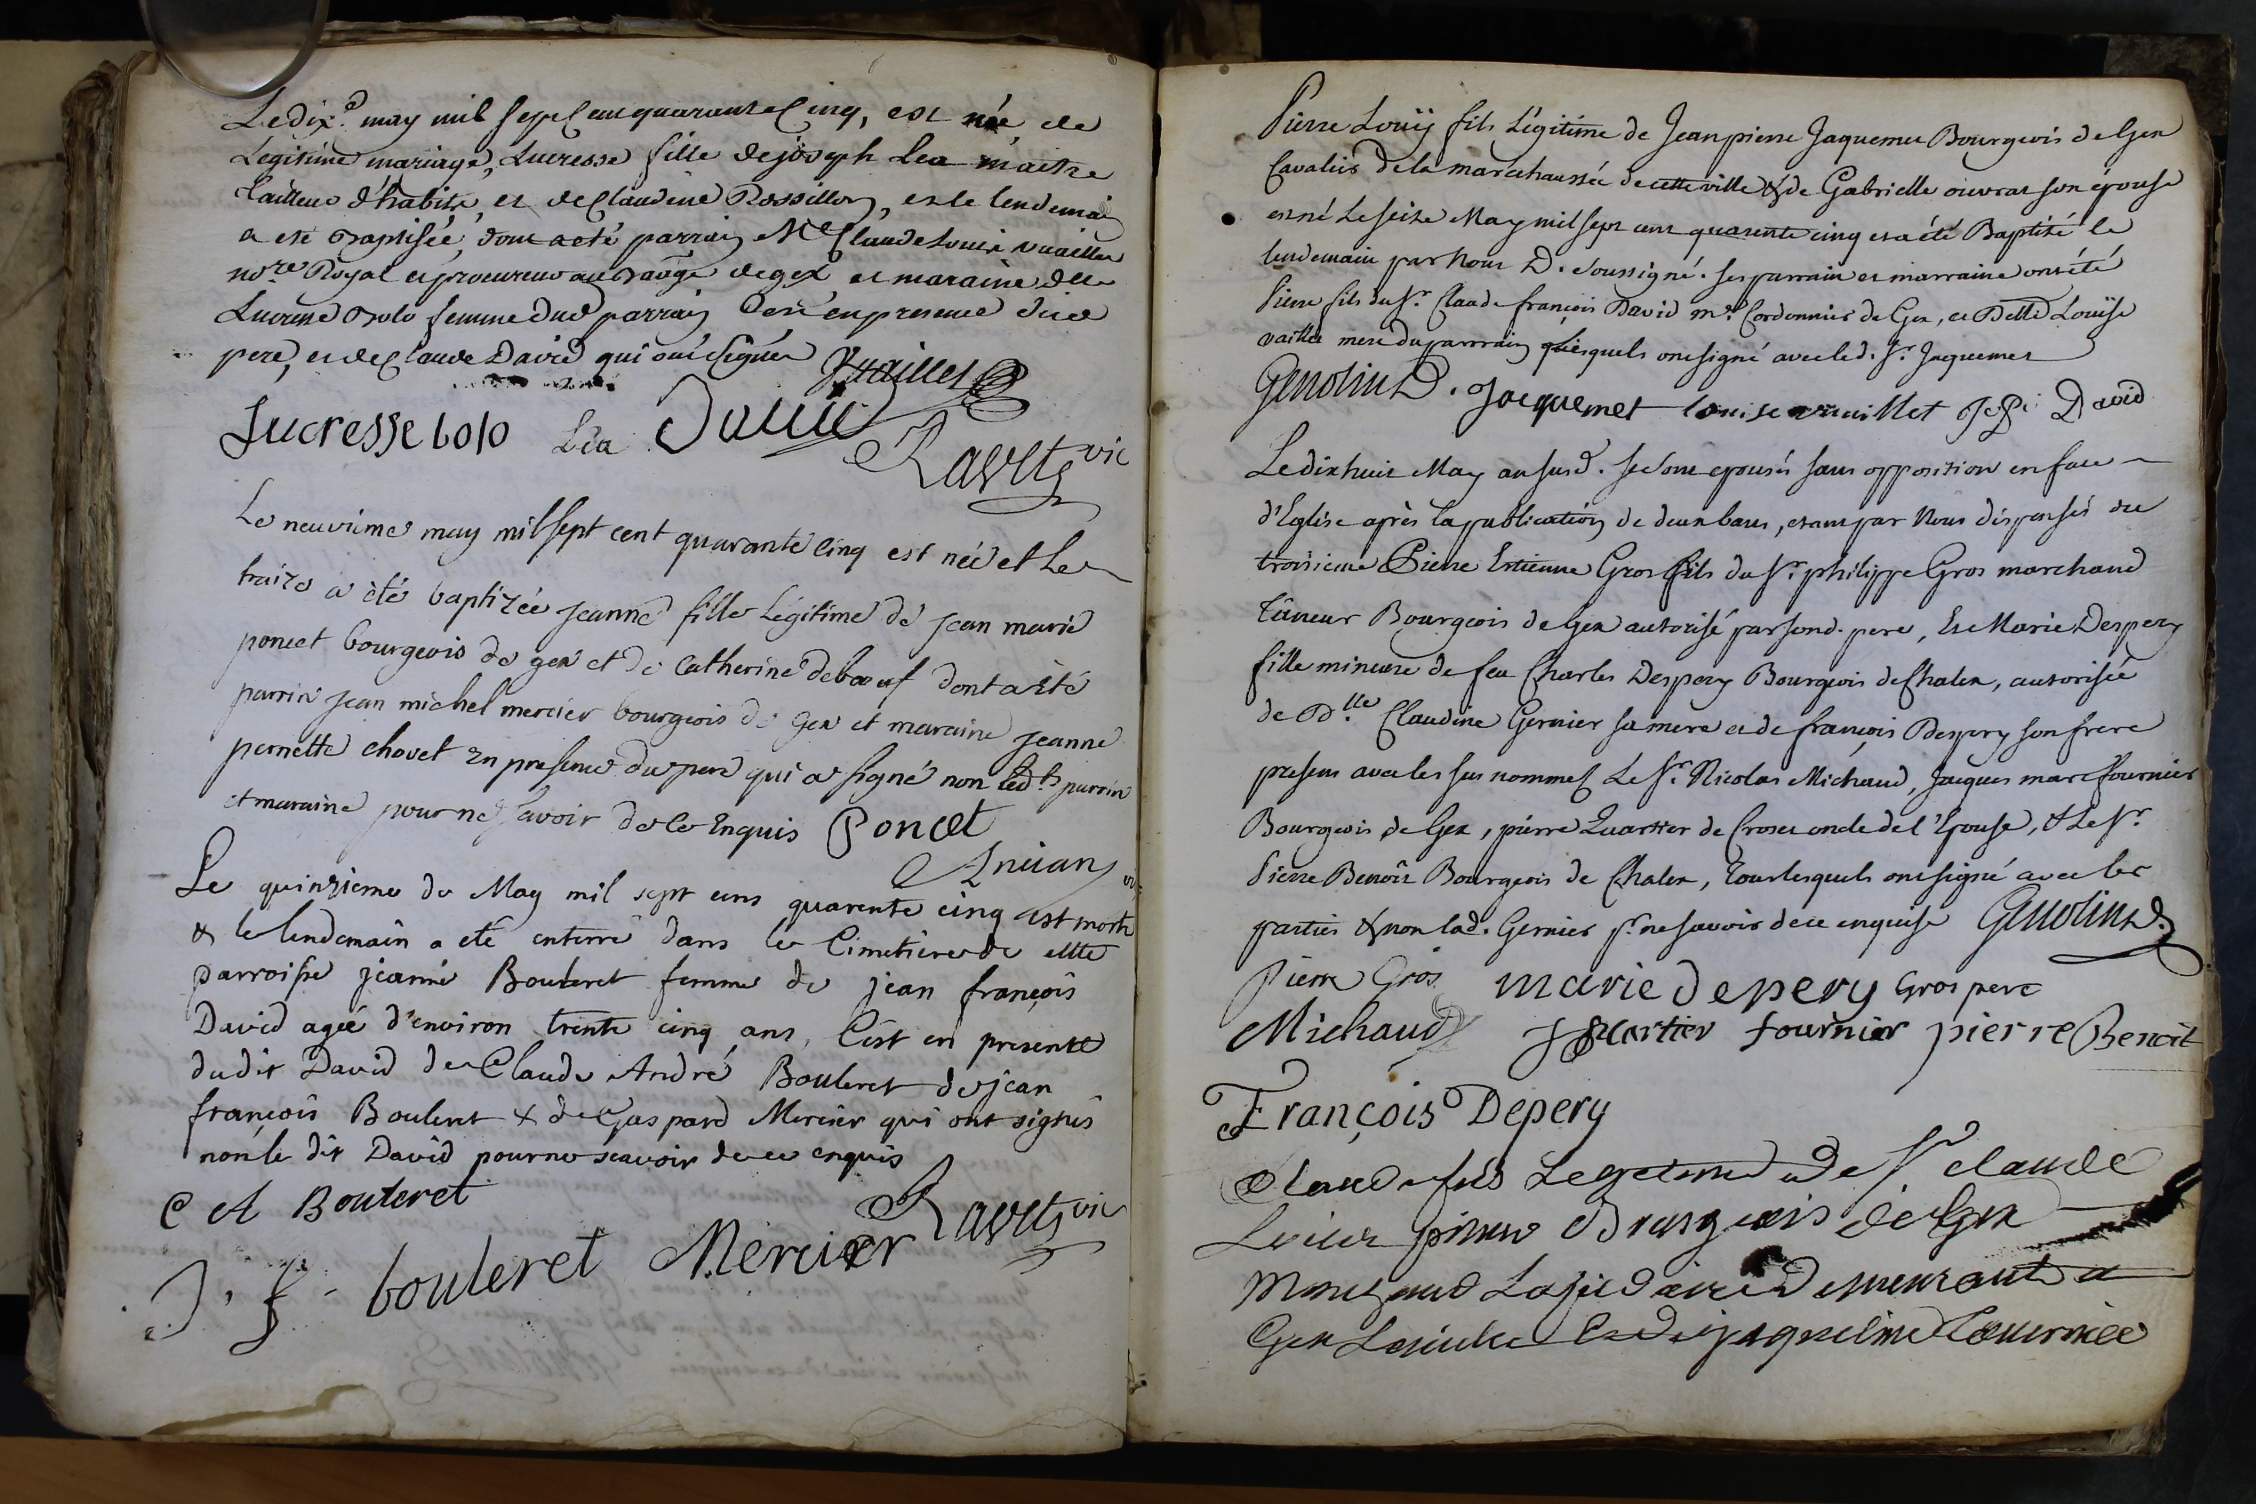 Le dix.e may mil sept cent quarante Cinq, est née de
Legitime mariage, Lucresse fille de joseph Lea maitre
tailleur d'habits, et de Claudine Rossillon, et le lendemain
a eté Baptisée, dont a eté parrain Me Claude Louis vuaillet
nore Royal et procureur au Bailge de gex et maraine dlle
Lucresse Bolo femme dud parrain C'est en presence dud
pere, et de Claude David qui ont signés Vuaillet
Lucresse bolo Léa David
Ravets vic
Le neuvieme may mil sept cent quarante cinq est née et le
traize a èté baptizée jeanne fille Légitime de jean marie
poncet bourgeois de gex et de Catherine deboeuf dont a èté
parrin jean michel mercier bourgeois de gex et maraine jeanne
pernette chovet en presence du pere qui a signé non Led.ts parrin
et maraine pour ne savoir de ce enquis Poncet
Le quinzieme de May mil sept cens quarente cinq est morte
& le lendemain a eté enterré dans le Cimetiere de cette
parroisse jeanne Bouleret femme de jean françois
David ageé d'environ trente cinq ans, C'est en presence
dudit David de Claude André Bouleret de jean
françois Bouleret & de Gaspard Mercier qui ont signés
non le dit David pour ne scavoir de ce enquis
C A Bouleret
Ravets vic
J. f. bouleret Mercier
Pierre Louÿ fils Légitime de Jean pierre Jaquemet Bourgeois de Gex
Cavalier de la marechaussée de cette ville & de Gabrielle ouvrar son épouse
est né Le seize May mil sept cent quarente cinq et a été Baptizé le
lendemain par Nous D. soussigné. ses parrain et marraine ont été
Pierre fils du Sr. Claude françois David m.e Cordonnier de Gex, et Delle Louÿse
vaillet mere du parrain lesquels ont signé avec led. Sr. Jaquemet
Genolin D. Jacquemet louise vuaillet David
Le dix huit May an susd. se sont epousés sans opposition en face
d'Eglise après la publication de deux bans, etant par Nous dispensés du
troisieme Pierre Estienne Gros fils du Sr. philippe Gros marchand
Tâneur Bourgeois de Gex autorisé par sond. pere, Et Marie Despery
fille mineure de feu Charles Despery Bourgeois de Chalex, autorisée
de D.lle Claudine Gernier sa mere et de françois Despery son frere
presens avec les sus nommes Le Sr. Nicolas Michaud, Jaques marc fournier
Bourgeois de Gex, pierre Quartier de Crozet oncle de l'Epouse, & Le Sr.
Pierre Benoît Bourgeois de Chalex, tous lesquels ont signé avec les
parties & non lad. Gernier pr. ne savoir de ce enquise Genolin D.
Pierre Gros marie depery Gros pere
Michaud Quartier fournier pierre Benoit
François Depery
Claude fils Legetime de Sr claude
Bourgeois de Gex
Marchand Lapidaire Demeurant a
Gex